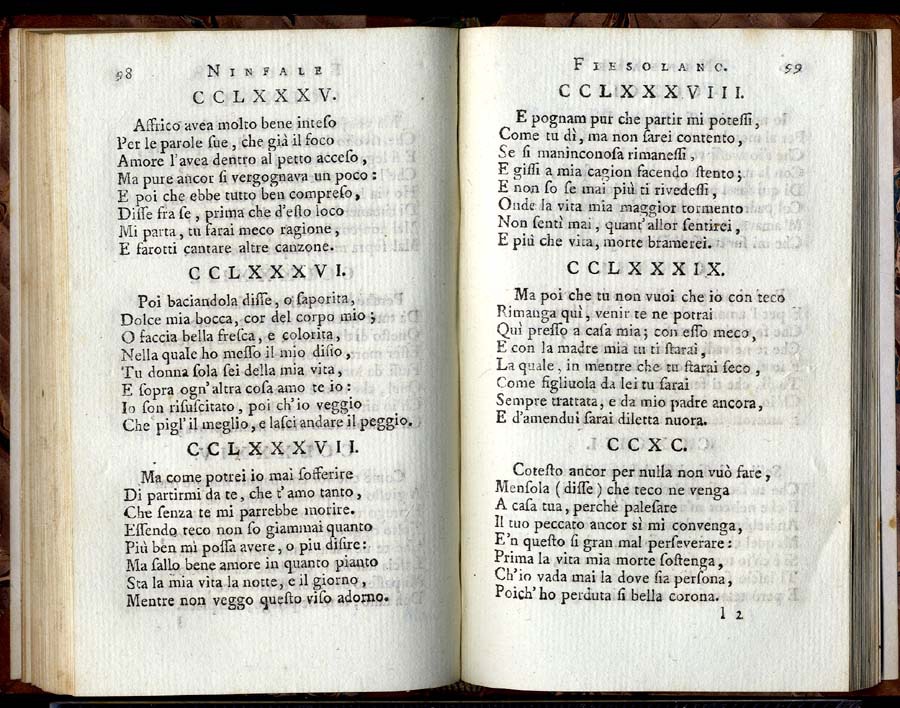 98 NINFALE
CCLXXXV.
Affrico avea molto bene inteſo
Per le parole ſue, che già il foco
Amore l'avea dentro al petto acceſo,
Ma pure ancor ſi vergognava un poco:
E poi che ebbe tutto ben compreſo,
Diſſe fra ſe, prima che d'eſto loco
Mi parta, tu farai meco ragione,
E farotti cantare altre canzone.
CCLXXXVI.
Poi baciandola diſſe, o ſaporita,
Dolce mia bocca, cor del corpo mio;
O faccia bella freſca, e colorita,
Nella quale ho meſſo il mio diſio,
Tu donna ſola ſei della mia vita,
E ſopra ogn'altra coſa amo te io:
Io ſon riſuſcitato, poi ch'io veggio
Che pigl'il meglio, e laſci andare il peggio.
CCLXXXVII.
Ma come potrei io mai ſofferire
Di partirmi da te, che t'amo tanto,
Che ſenza te mi parrebbe morire.
Eſſendo teco non ſo giammai quanto
Più ben mi poſſa avere, o piu diſire:
Ma ſallo bene amore in quanto pianto
Sta la mia vita la notte, e il giorno,
Mentre non veggo queſto viſo adorno.
FIESOLANO. 99
CCLXXXVIII.
E pognam pur che partir mi poteſſi,
Come tu dì, ma non ſarei contento,
Se ſi maninconoſa rimaneſſi,
E giſſi a mia cagion facendo ſtento;
E non ſo ſe mai più ti rivedeſſi,
Onde la vita mia maggior tormento
Non ſentì mai, quant'allor ſentirei,
E più che vita, morte bramerei.
CCLXXXIX.
Ma poi che tu non vuoi che io con teco
Rimanga quì, venir te ne potrai
Quì preſſo a caſa mia; con eſſo meco,
E con la madre mia tu ti ſtarai,
La quale, in mentre che tu ſtarai ſeco,
Come figliuola da lei tu ſarai
Sempre trattata, e da mio padre ancora,
E d'amendui ſarai diletta nuora.
CCXC.
Coteſto ancor per nulla non vuò fare,
Menſola (diſſe) che teco ne venga
A caſa tua, perchè paleſare
Il tuo peccato ancor sì mi convenga,
E'n queſto ſi gran mal perſeverare:
Prima la vita mia morte ſoſtenga,
Ch'io vada mai la dove ſia perſona,
Poich' ho perduta ſi bella corona.
I 2